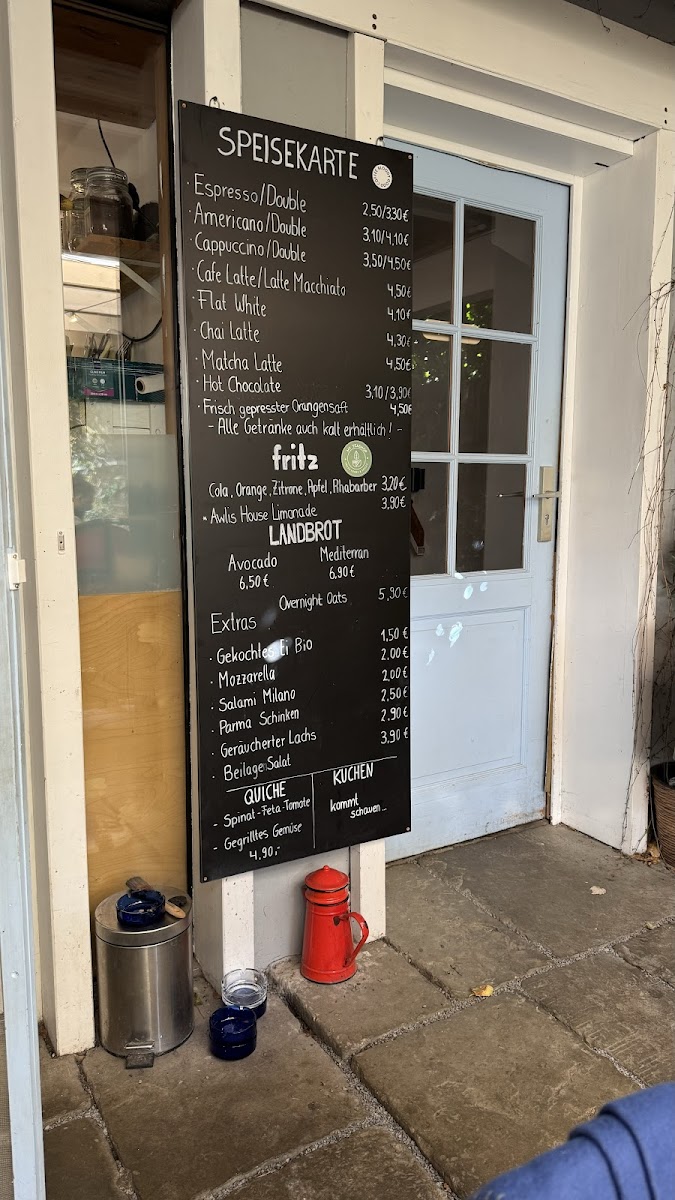 SPEISEKARTE
· Espresso/Double 2.50/3.30€
· Americano/Double 3.10/4.10€
· Cappuccino/Double 3,50/4.50€
· Cafe Latte/Latte Macchiato 4,50€
· Flat White 4.10€
· Chai Latte 4,30€
· Matcha Latte 4,50€
· Hot Chocolate 3,10/3,90€
· Frisch gepresster Orangensaft 4,50€
- Alle Getränke auch kalt erhältlich! -
fritz
Cola, Orange, Zitrone, Apfel, Rhabarber 3,20€
· Awlis House Limonade 3,90€
LANDBROT
Avocado Mediterran
6,50€ 6,90€
Overnight Oats 5,90€
Extras
· Gekochtes Ei Bio 1,50€
· Mozzarella 2.00€
· Salami Milano 2.00€
· Parma Schinken 2.50€
· Geräucherter Lachs 2.90€
· Beilagen Salat 3,90€
QUICHE
- Spinat-Feta-Tomate
- Gegrilltes Gemüse
4.90,-
KUCHEN
kommt
schauen...